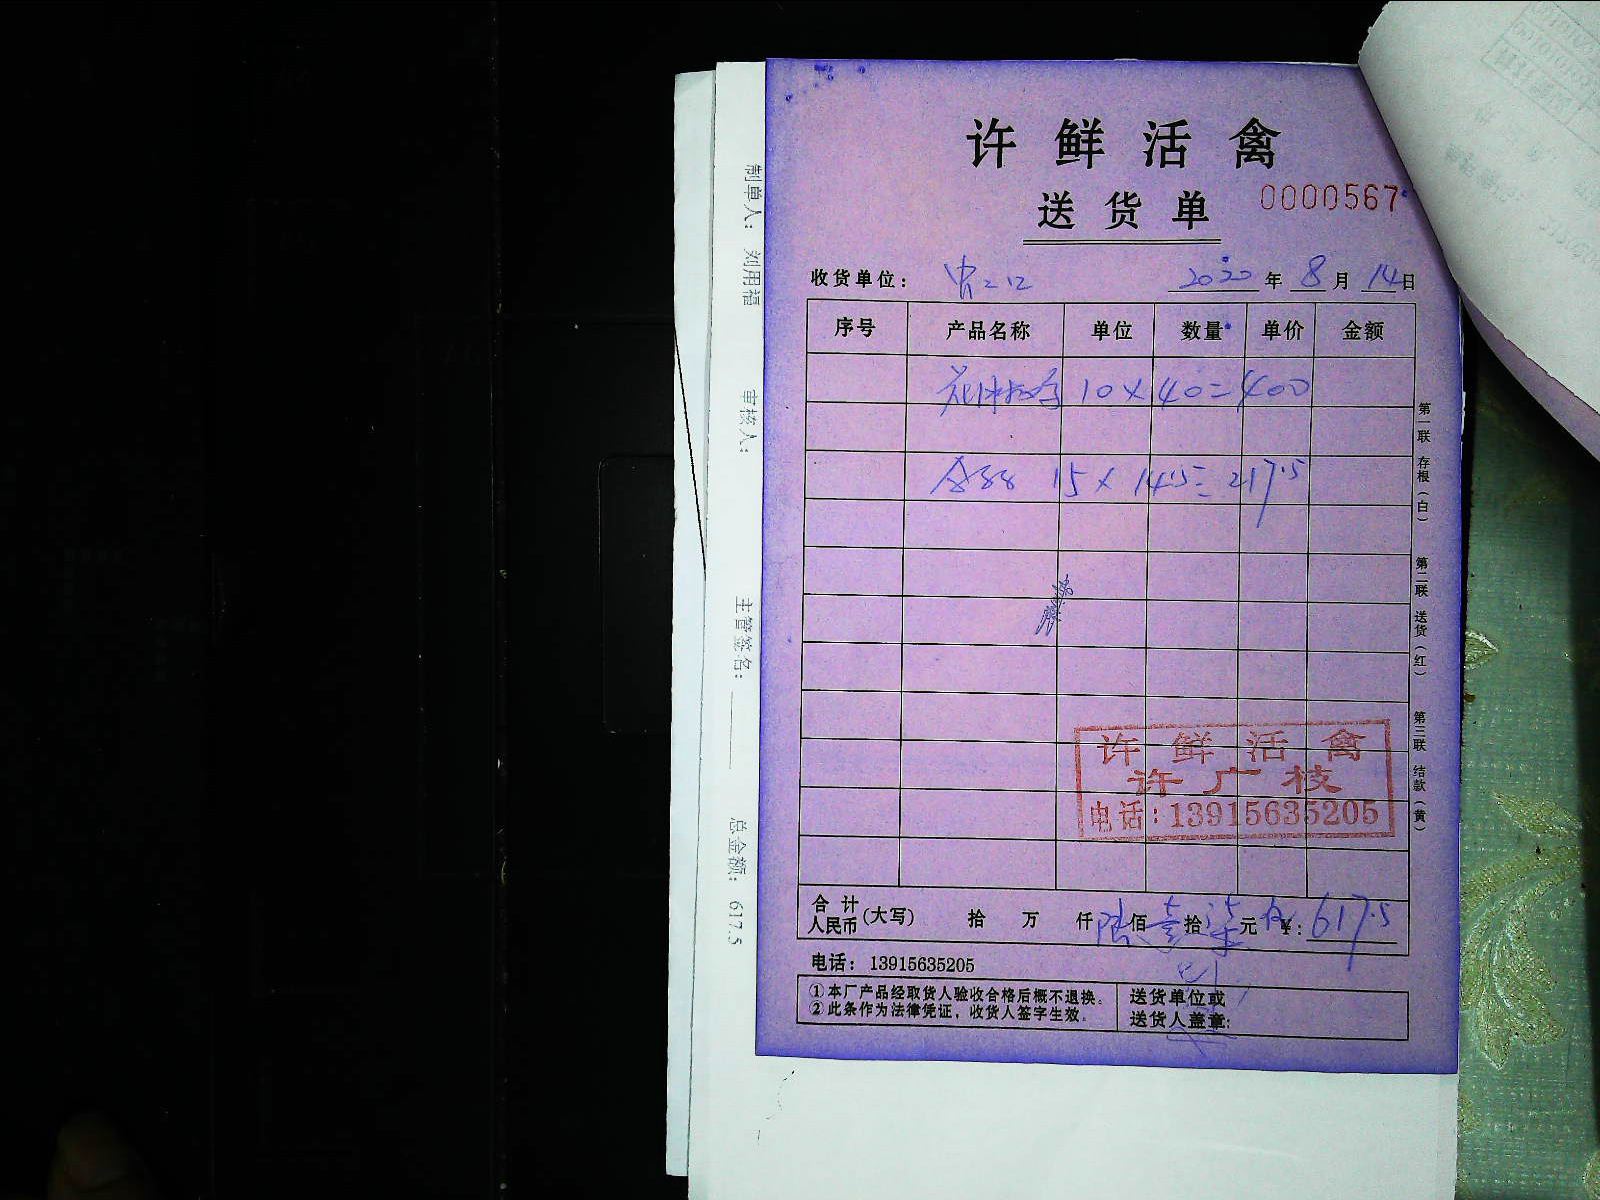 许鲜活禽
送货单 0000567
收货单位： 2020年8月14日
序号 产品名称 单位 数量 单价 金额
10×40=400
15×14.5=217.5
许鲜活禽
许广枝
电话：13915635205
合计人民币(大写) 拾 万 仟 陆佰壹拾柒元 ¥：617.5
电话：13915635205
①本厂产品经取货人验收合格后概不退换。
②此条作为法律凭证，收货人签字生效。
送货单位或
送货人盖章：
第一联 存根（白）
第二联 送货（红）
第三联 结款（黄）
制单人： 刘用福 审核人： 主管签名： 总金额： 617.5